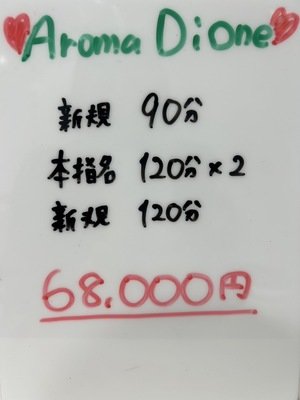 Aroma Dione
新規 90分
本指名 120分×2
新規 120分
68.000円